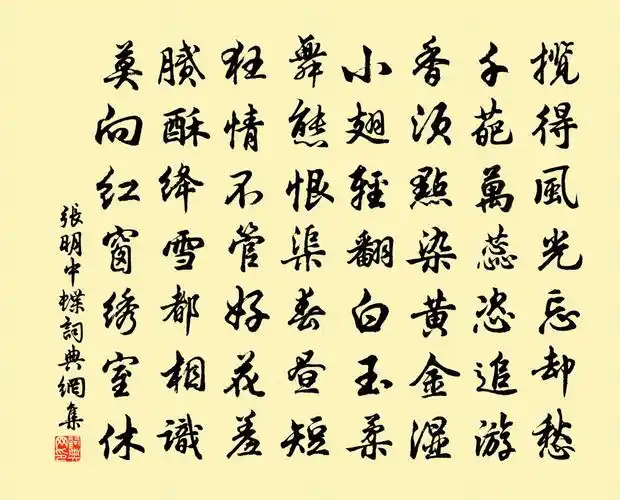 攬得風光忘却愁
千葩萬蕊恣追游
香须點染黄金濕
小翅輕翻白玉柔
舞態恨渠春昼短
狂情不管好花羞
膩酥绛雪都相識
莫向红窗绣室休
張明中蝶詞典網集